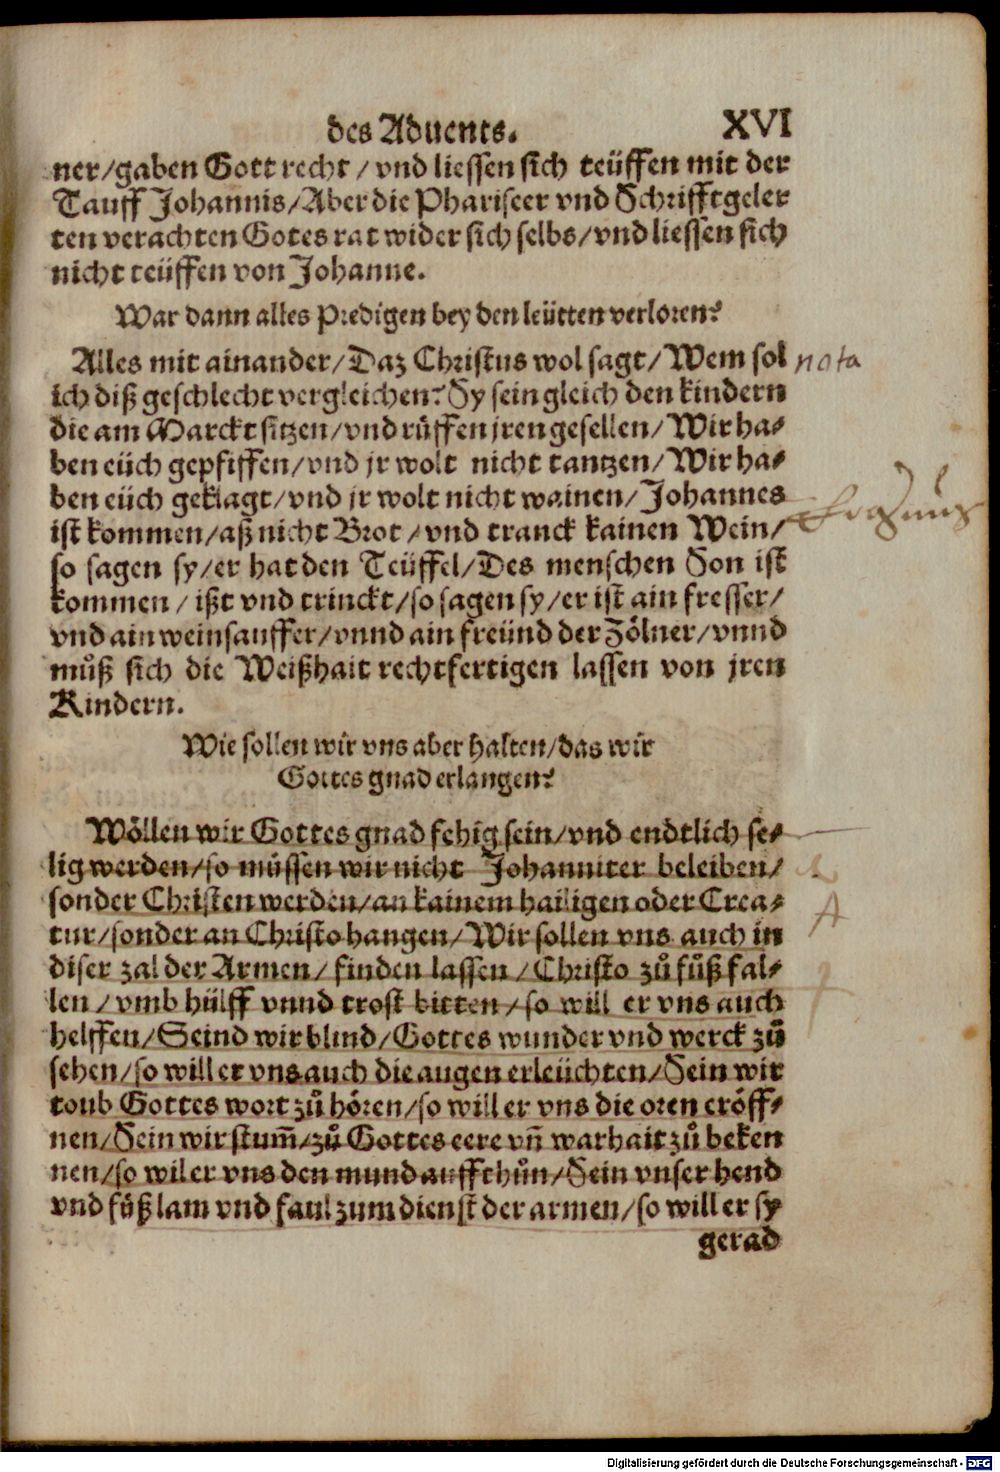 des Aduents. XVI
ner/gaben Gott recht/vnd liessen sich teüffen mit der
Tauff Johannis/Aber die Phariseer vnd Schrifftgeler
ten verachten Gotes rat wider sich selbs/vnd liessen sich
nicht teüffen von Johanne.
War dann alles Predigen bey den leütten verloren?
Alles mit ainander/Daz Christus wol sagt/Wem sol
nota
ich diß geschlecht vergleichen? Sy sein gleich den kindern
die am Marckt sitzen/vnd růffen jren gesellen/Wir ha⸗
ben eüch gepfiffen/vnd jr wolt nicht tantzen/Wir ha⸗
ben eüch geklagt/vnd jr wolt nicht wainen/Johannes
ist kommen/aß nicht Brot/vnd tranck kainen Wein/
so sagen sy/er hat den Teüffel/Des menschen Son ist
kommen/ißt vnd trinckt/so sagen sy/er ist ain fresser/
vnd ain weinsauffer/vnnd ain freünd der Zölner/vnnd
můß sich die Weißhait rechtfertigen lassen von jren
Kindern.
Wie sollen wir vns aber halten/das wir
Gottes gnad erlangen?
Wöllen wir Gottes gnad fehig sein/vnd endtlich se⸗
lig werden/so müssen wir nicht Johanniter beleiben/
sonder Christen werden/an kainem hailigen oder Crea⸗
tur/sonder an Christo hangen/Wir sollen vns auch in
diser zal der Armen/finden lassen/Christo zů fůß fal⸗
len/vmb hülff vnnd trost bitten/so will er vns auch
helffen/Seind wir blind/Gottes wunder vnd werck zů
sehen/so will er vns auch die augen erleüchten/Sein wir
toub Gottes wort zů hören/so will er vns die oren eröff⸗
nen/Sein wir stum̃/zů Gottes eere vñ warhait zů beken
nen/so wil er vns den mund auffthůn/Sein vnser hend
vnd fůß lam vnd faul zum dienst der armen/so will er sy
gerad
Digitalisierung gefördert durch die Deutsche Forschungsgemeinschaft - DFG